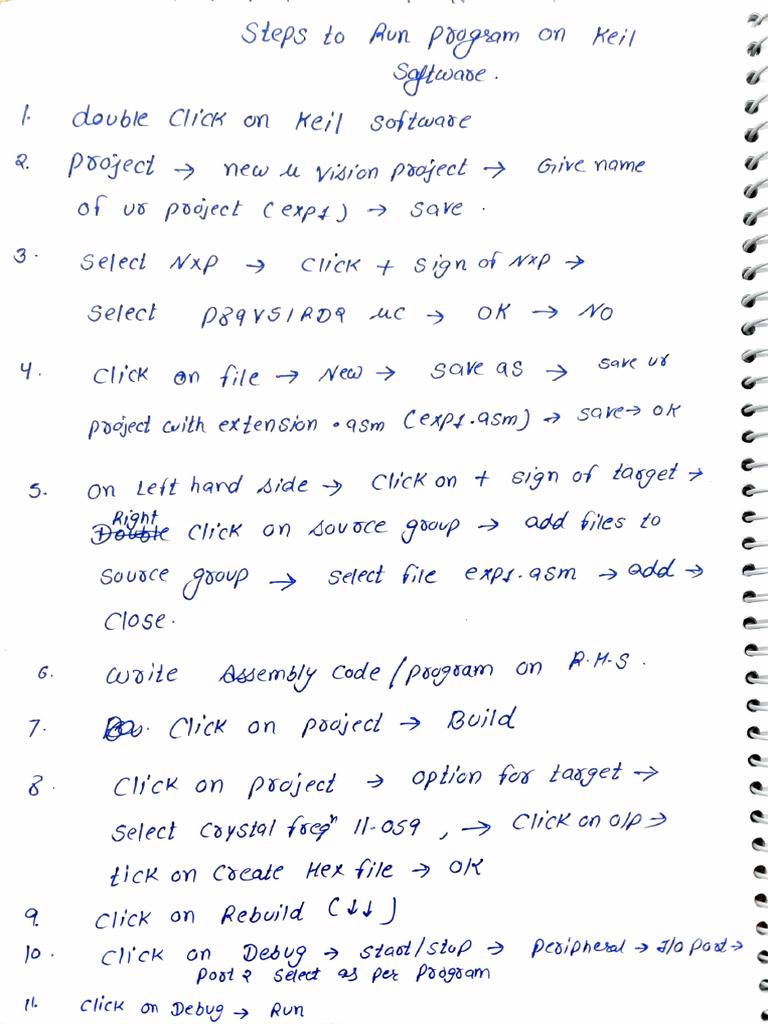 Steps to Run program on Keil
Software.
1. double Click on Keil Software
2. Project → new µ Vision project → Give name
of ur project (exp1) → save.
3. Select NXP → Click + Sign of NXP →
Select P89V51RD2 µC → OK → NO
4. Click on file → New → save as → save ur
project with extension .asm (exp1.asm) → save → OK
5. On Left hand side → Click on + sign of target →
Right
Double Click on source group → add files to
source group → select file exp1.asm → add →
Close.
6. Write Assembly Code/program on R.H.S.
7. Click on project → Build
8. Click on project → option for target →
Select Crystal freqⁿ 11.059, → Click on O/P →
tick on Create Hex file → OK
9. Click on Rebuild (↓↓)
10. Click on Debug → Start/Stop → Peripheral → I/O Port →
Port 2 Select as per Program
11. Click on Debug → Run